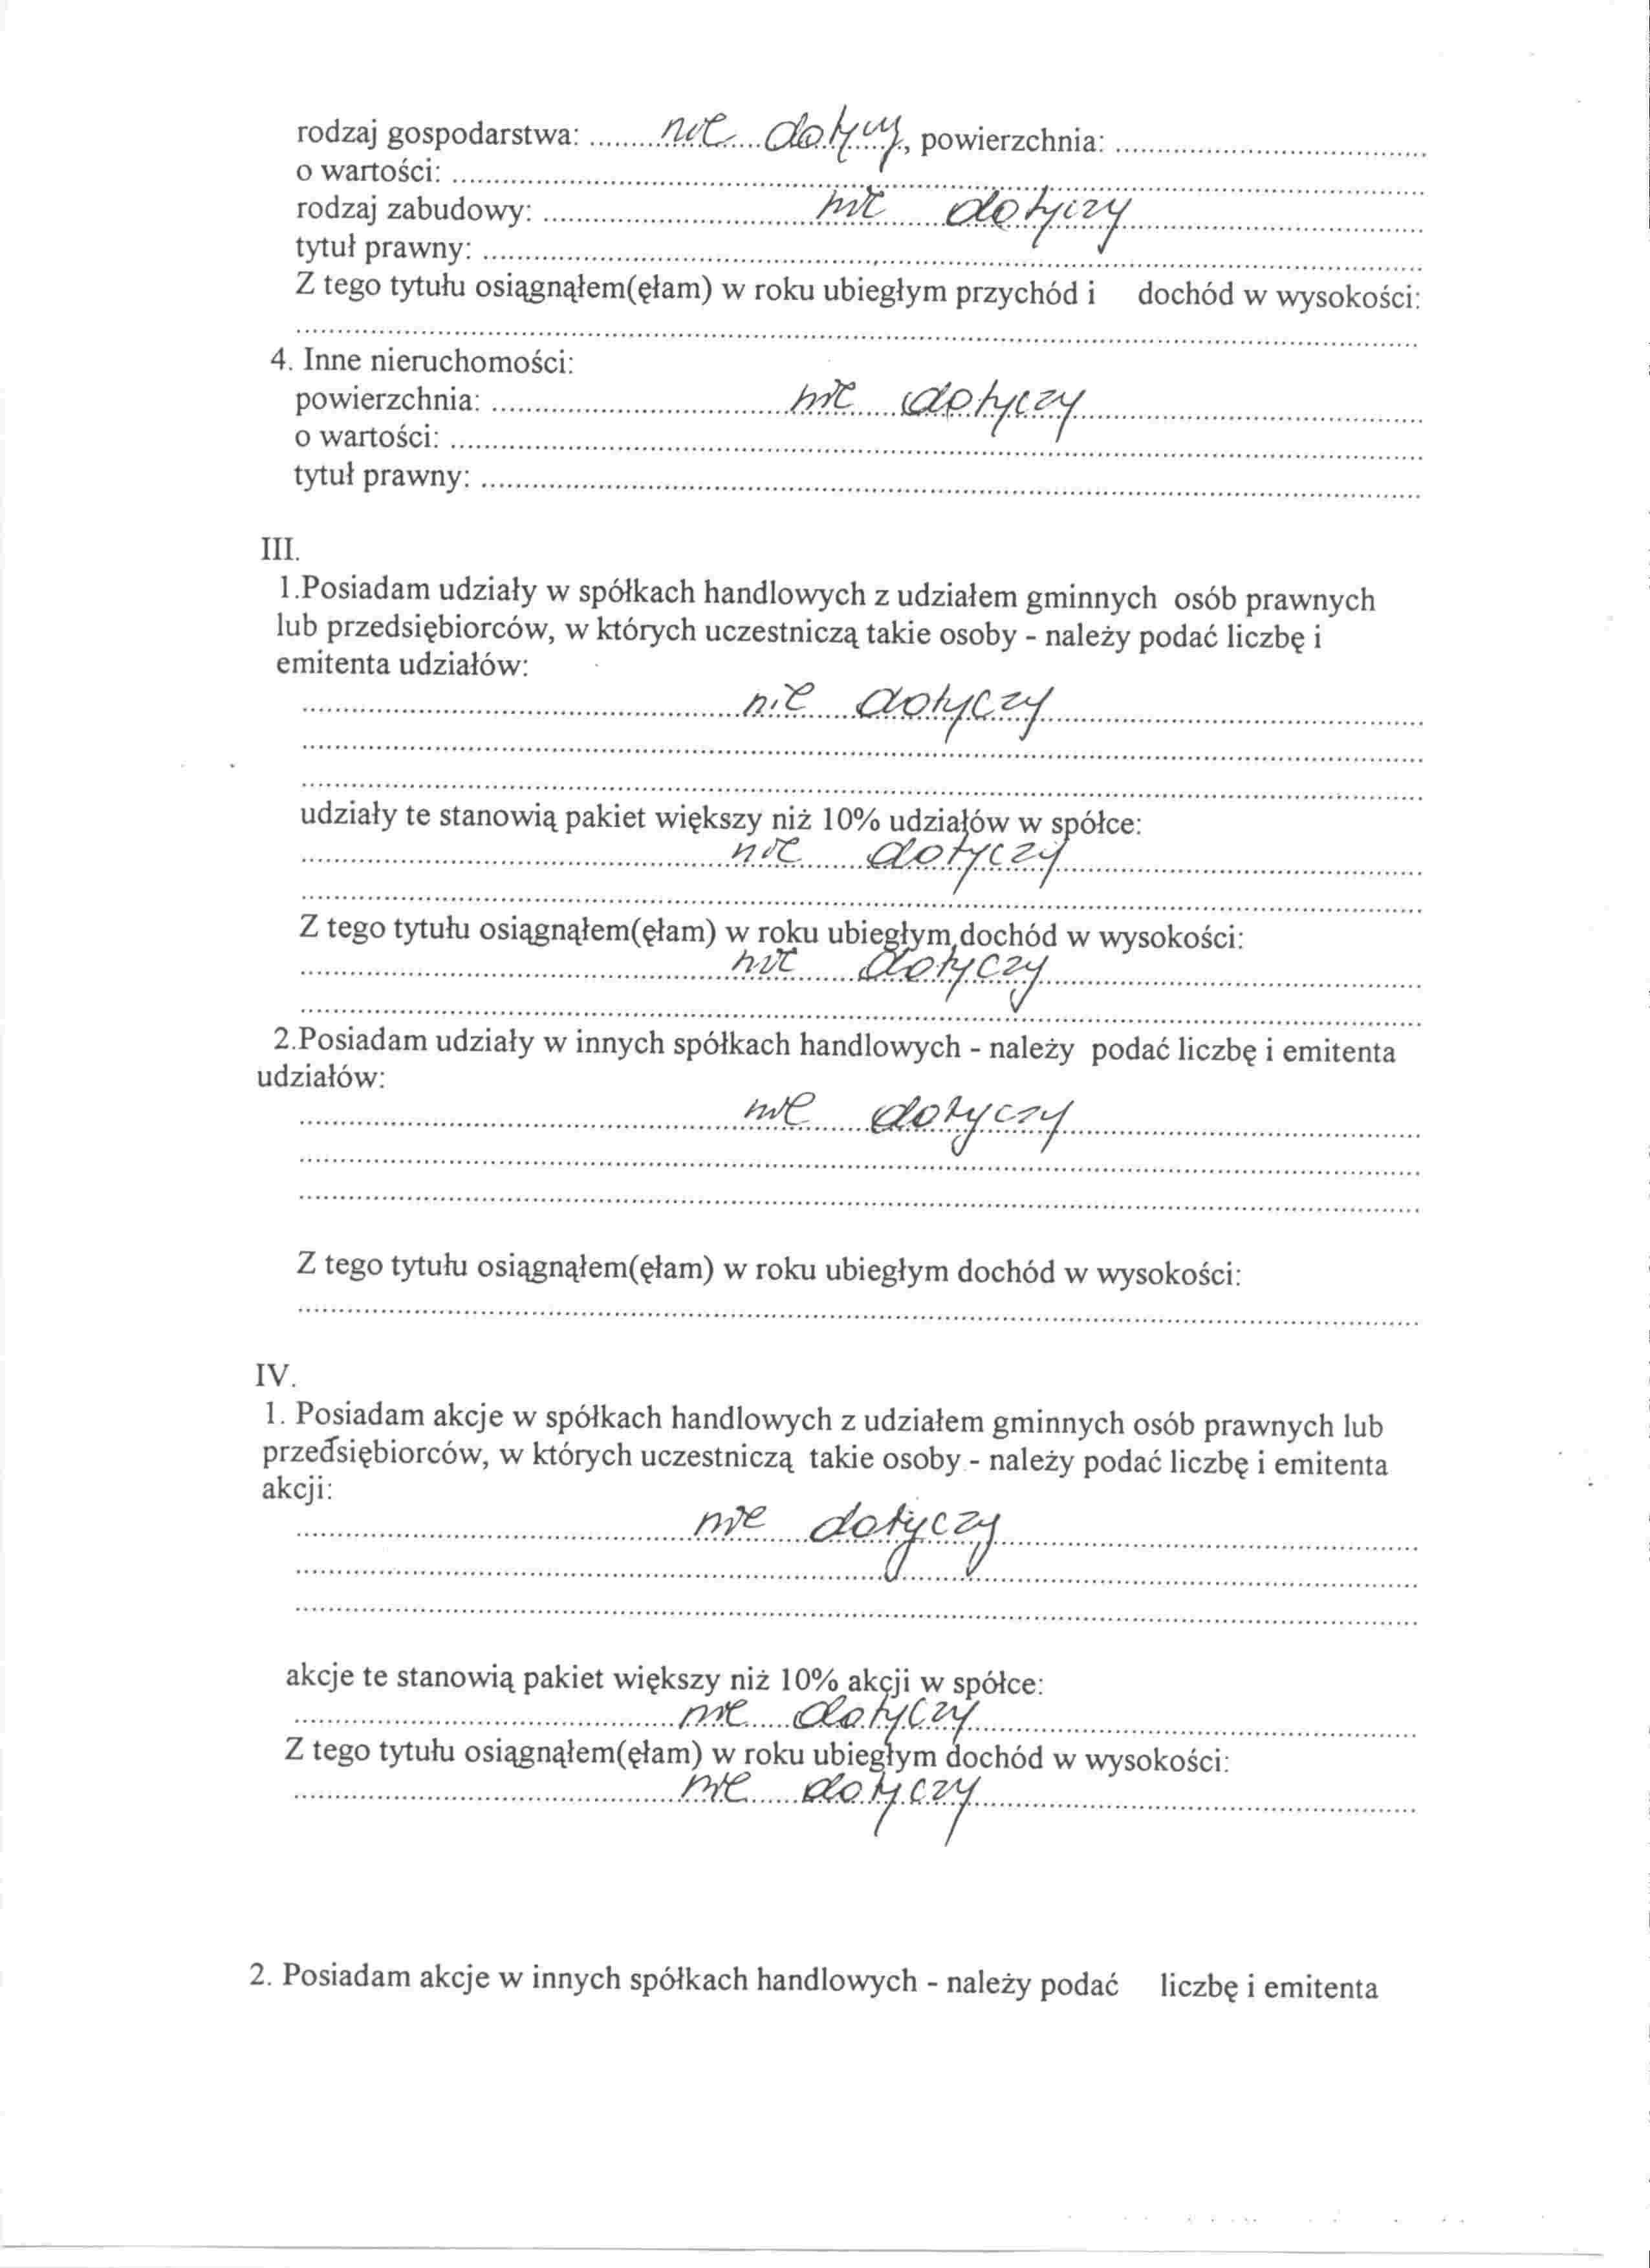 rodzaj gospodarstwa: ........nie....dotyczy., powierzchnia: ....................................
o wartości: ....................................
rodzaj zabudowy: ....................nie....dotyczy....................
tytuł prawny: ....................................
Z tego tytułu osiągnąłem(ęłam) w roku ubiegłym przychód i dochód w wysokości:
....................................
4. Inne nieruchomości:
powierzchnia: ....................nie....dotyczy....................
o wartości: ....................................
tytuł prawny: ....................................
III.
1.Posiadam udziały w spółkach handlowych z udziałem gminnych osób prawnych
lub przedsiębiorców, w których uczestniczą takie osoby - należy podać liczbę i
emitenta udziałów:
....................nie....dotyczy....................
....................................
....................................
udziały te stanowią pakiet większy niż 10% udziałów w spółce:
....................nie....dotyczy....................
....................................
Z tego tytułu osiągnąłem(ęłam) w roku ubiegłym dochód w wysokości:
....................nie....dotyczy....................
....................................
2.Posiadam udziały w innych spółkach handlowych - należy podać liczbę i emitenta
udziałów:
....................nie....dotyczy....................
....................................
....................................
Z tego tytułu osiągnąłem(ęłam) w roku ubiegłym dochód w wysokości:
....................................
IV.
1. Posiadam akcje w spółkach handlowych z udziałem gminnych osób prawnych lub
przedsiębiorców, w których uczestniczą takie osoby - należy podać liczbę i emitenta
akcji:
....................nie....dotyczy....................
....................................
....................................
akcje te stanowią pakiet większy niż 10% akcji w spółce:
....................nie....dotyczy....................
Z tego tytułu osiągnąłem(ęłam) w roku ubiegłym dochód w wysokości:
....................nie....dotyczy....................
2. Posiadam akcje w innych spółkach handlowych - należy podać liczbę i emitenta